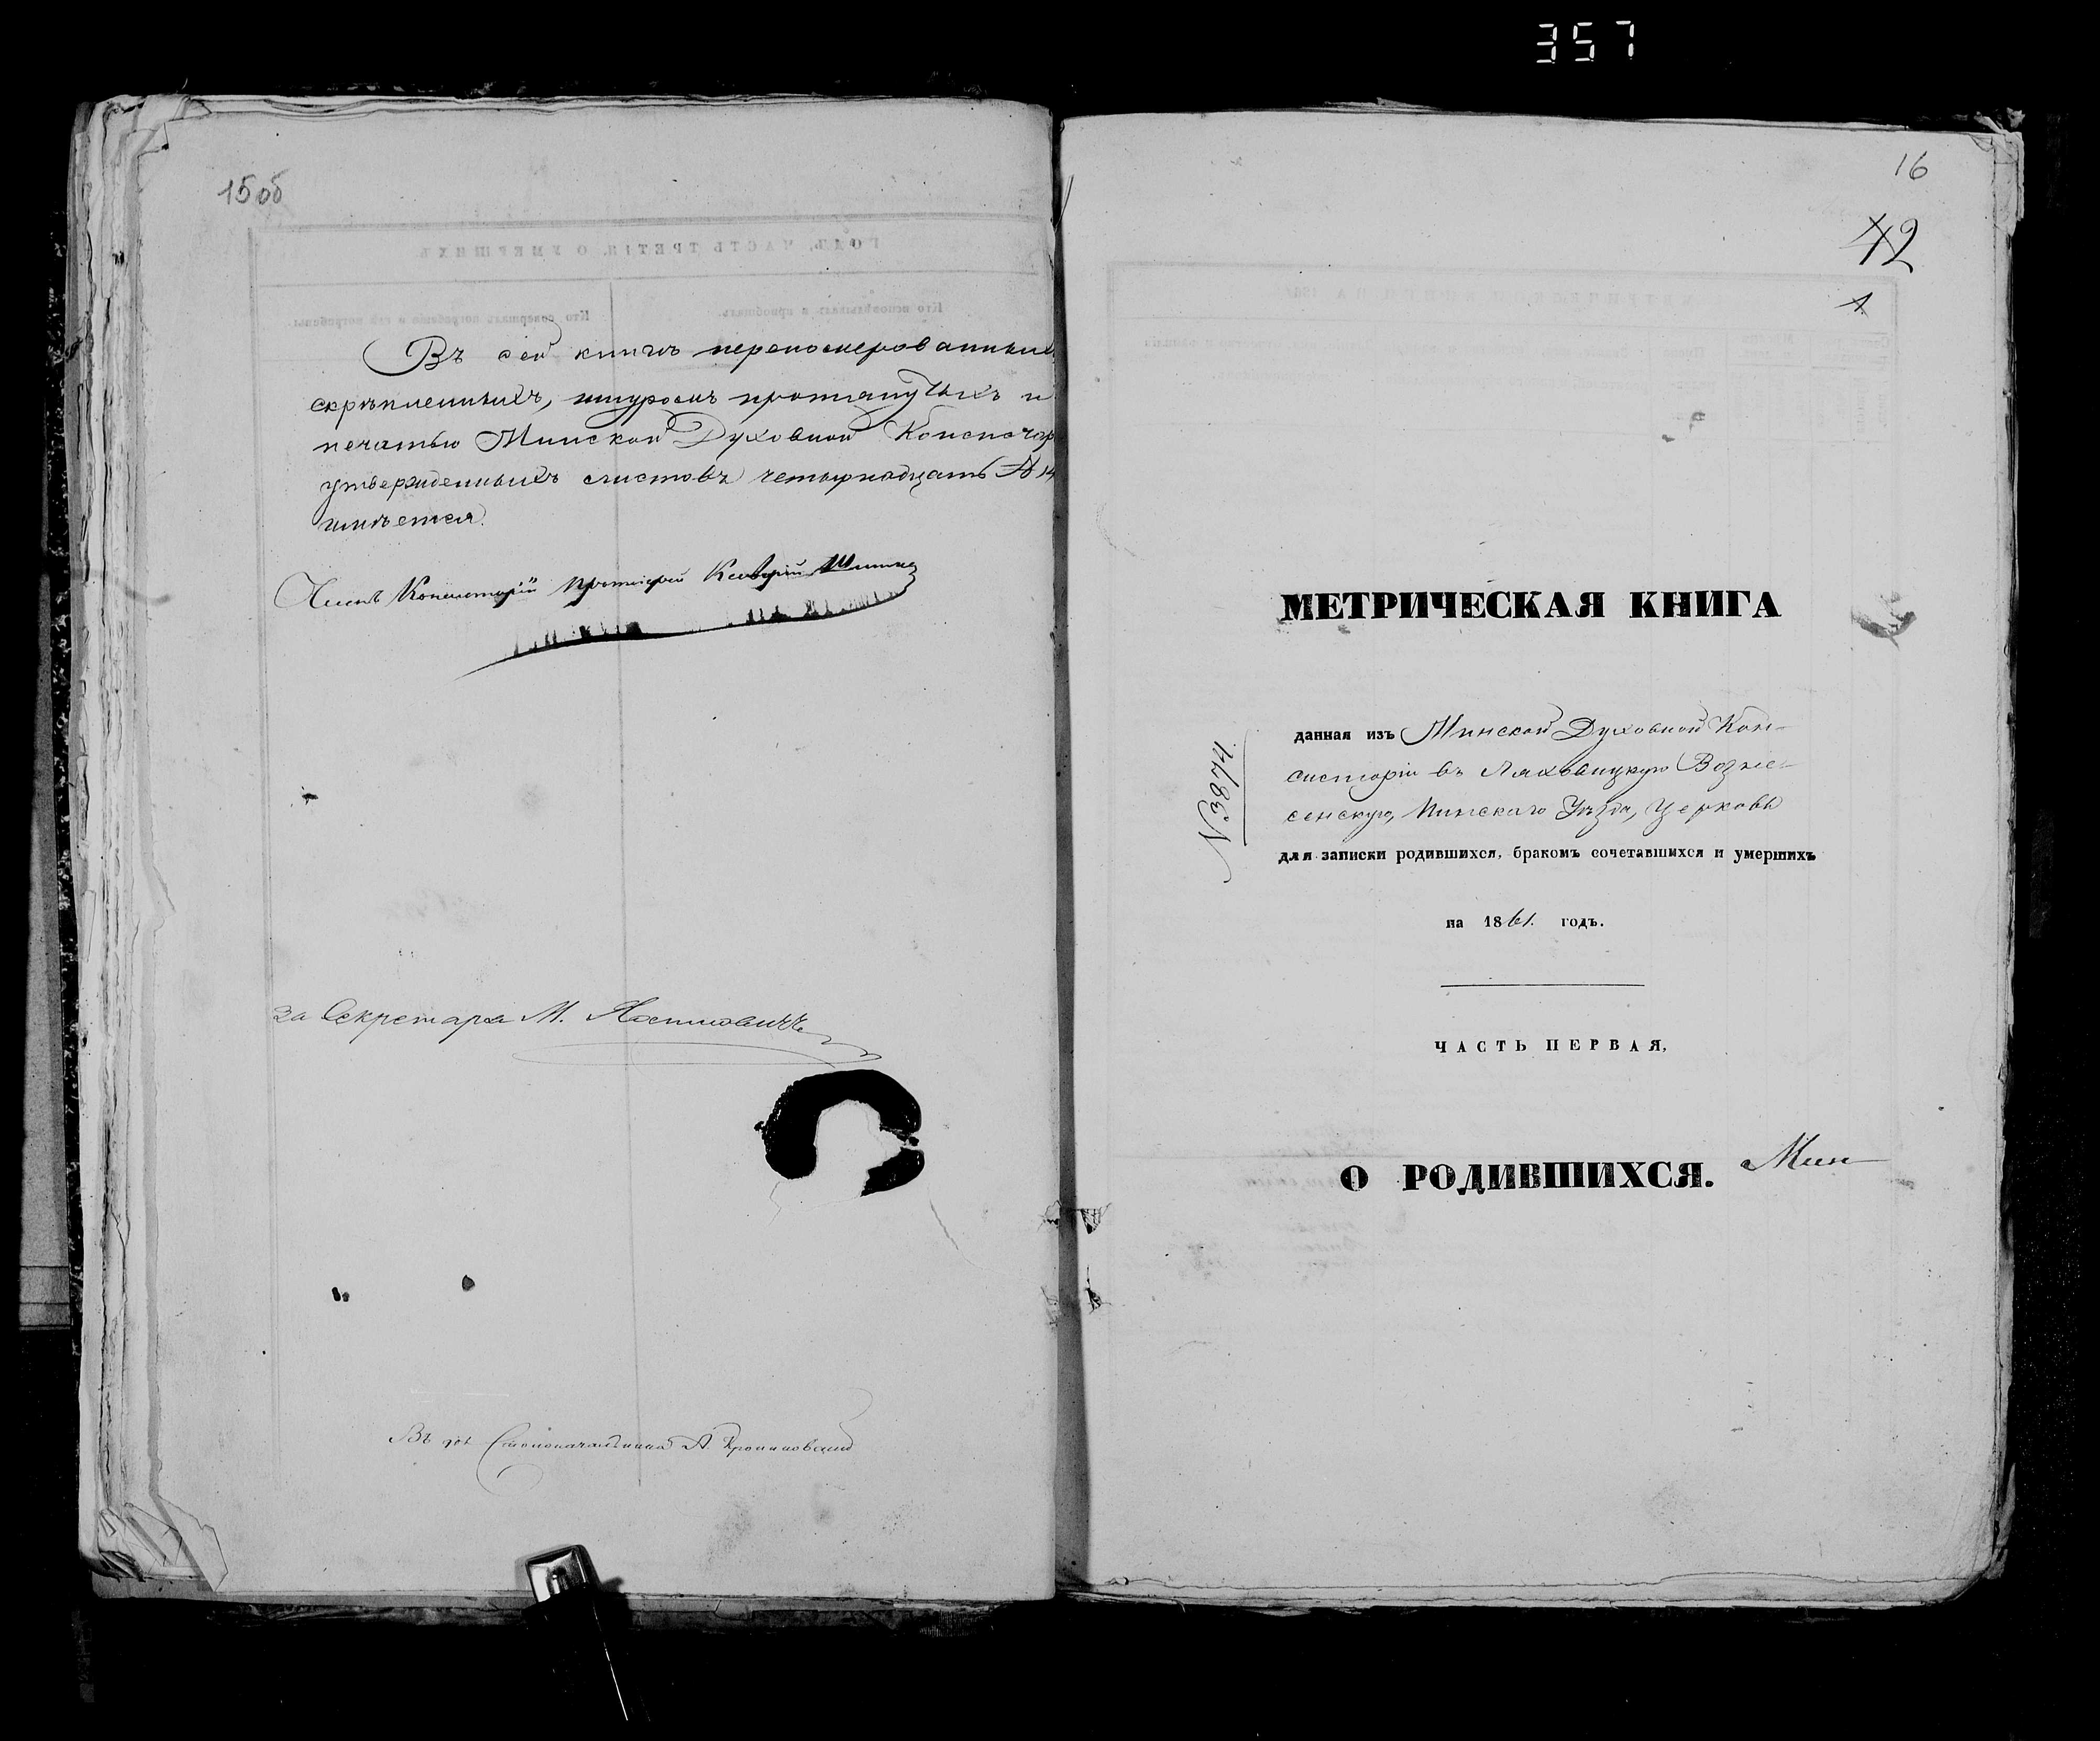 357
15об
Въ сей книгѣ перенумерованныхъ
скрѣпленныхъ, шнуромъ протянутыхъ и
печатью Минской Духовной Консистор
утвержденныхъ листовъ четырнадцать № 14
имѣется.
Членъ Консисторіи Протоіерей
за Секретаря М.
Въ дол. Столоначальника А.
16
42
1
МЕТРИЧЕСКАЯ КНИГА
данная изъ Минской Духовной Кон-
систоріи въ Ляховицкую Возне-
сенскую, Пинскаго Уѣзда, Церковь
для записки родившихся, бракомъ сочетавшихся и умершихъ
на 1861. годъ.
№ 3874
ЧАСТЬ ПЕРВАЯ,
О РОДИВШИХСЯ. Мин